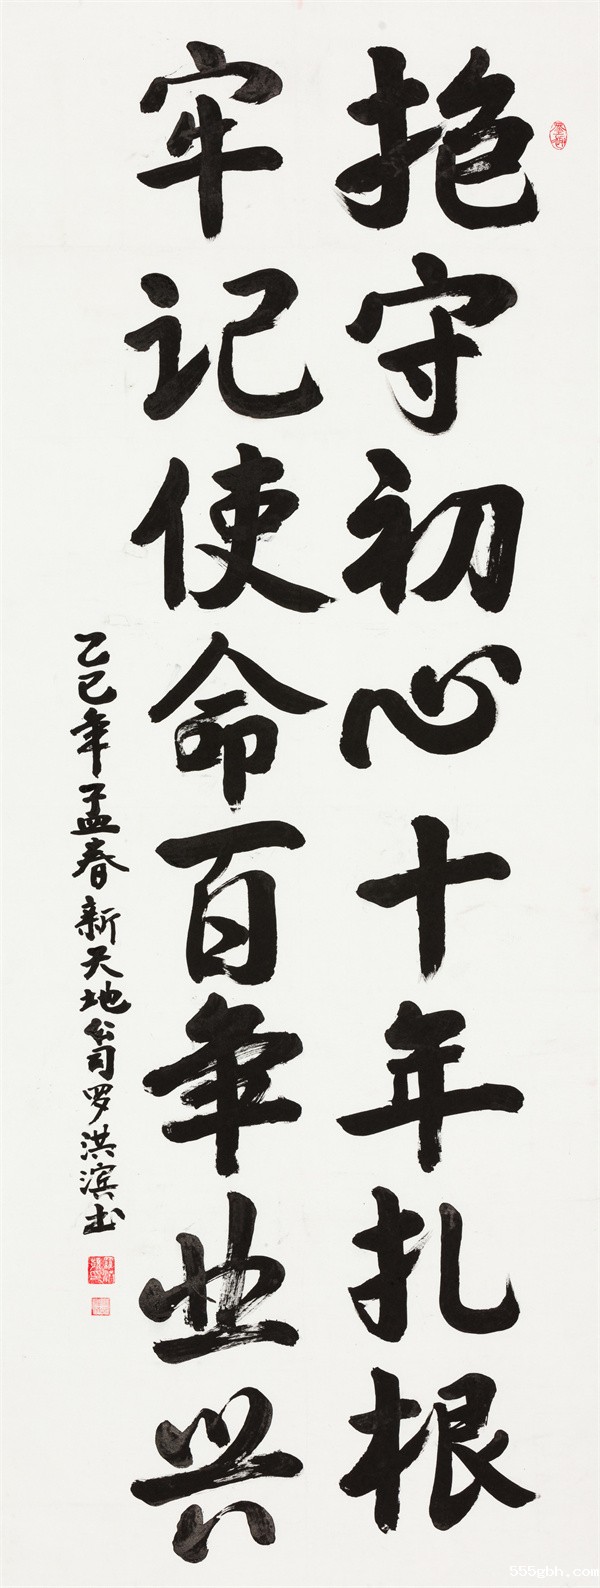 抱守初心十年扎根
牢记使命百年业兴
乙巳年孟春新天地公司罗洪滨书
555gbh.com